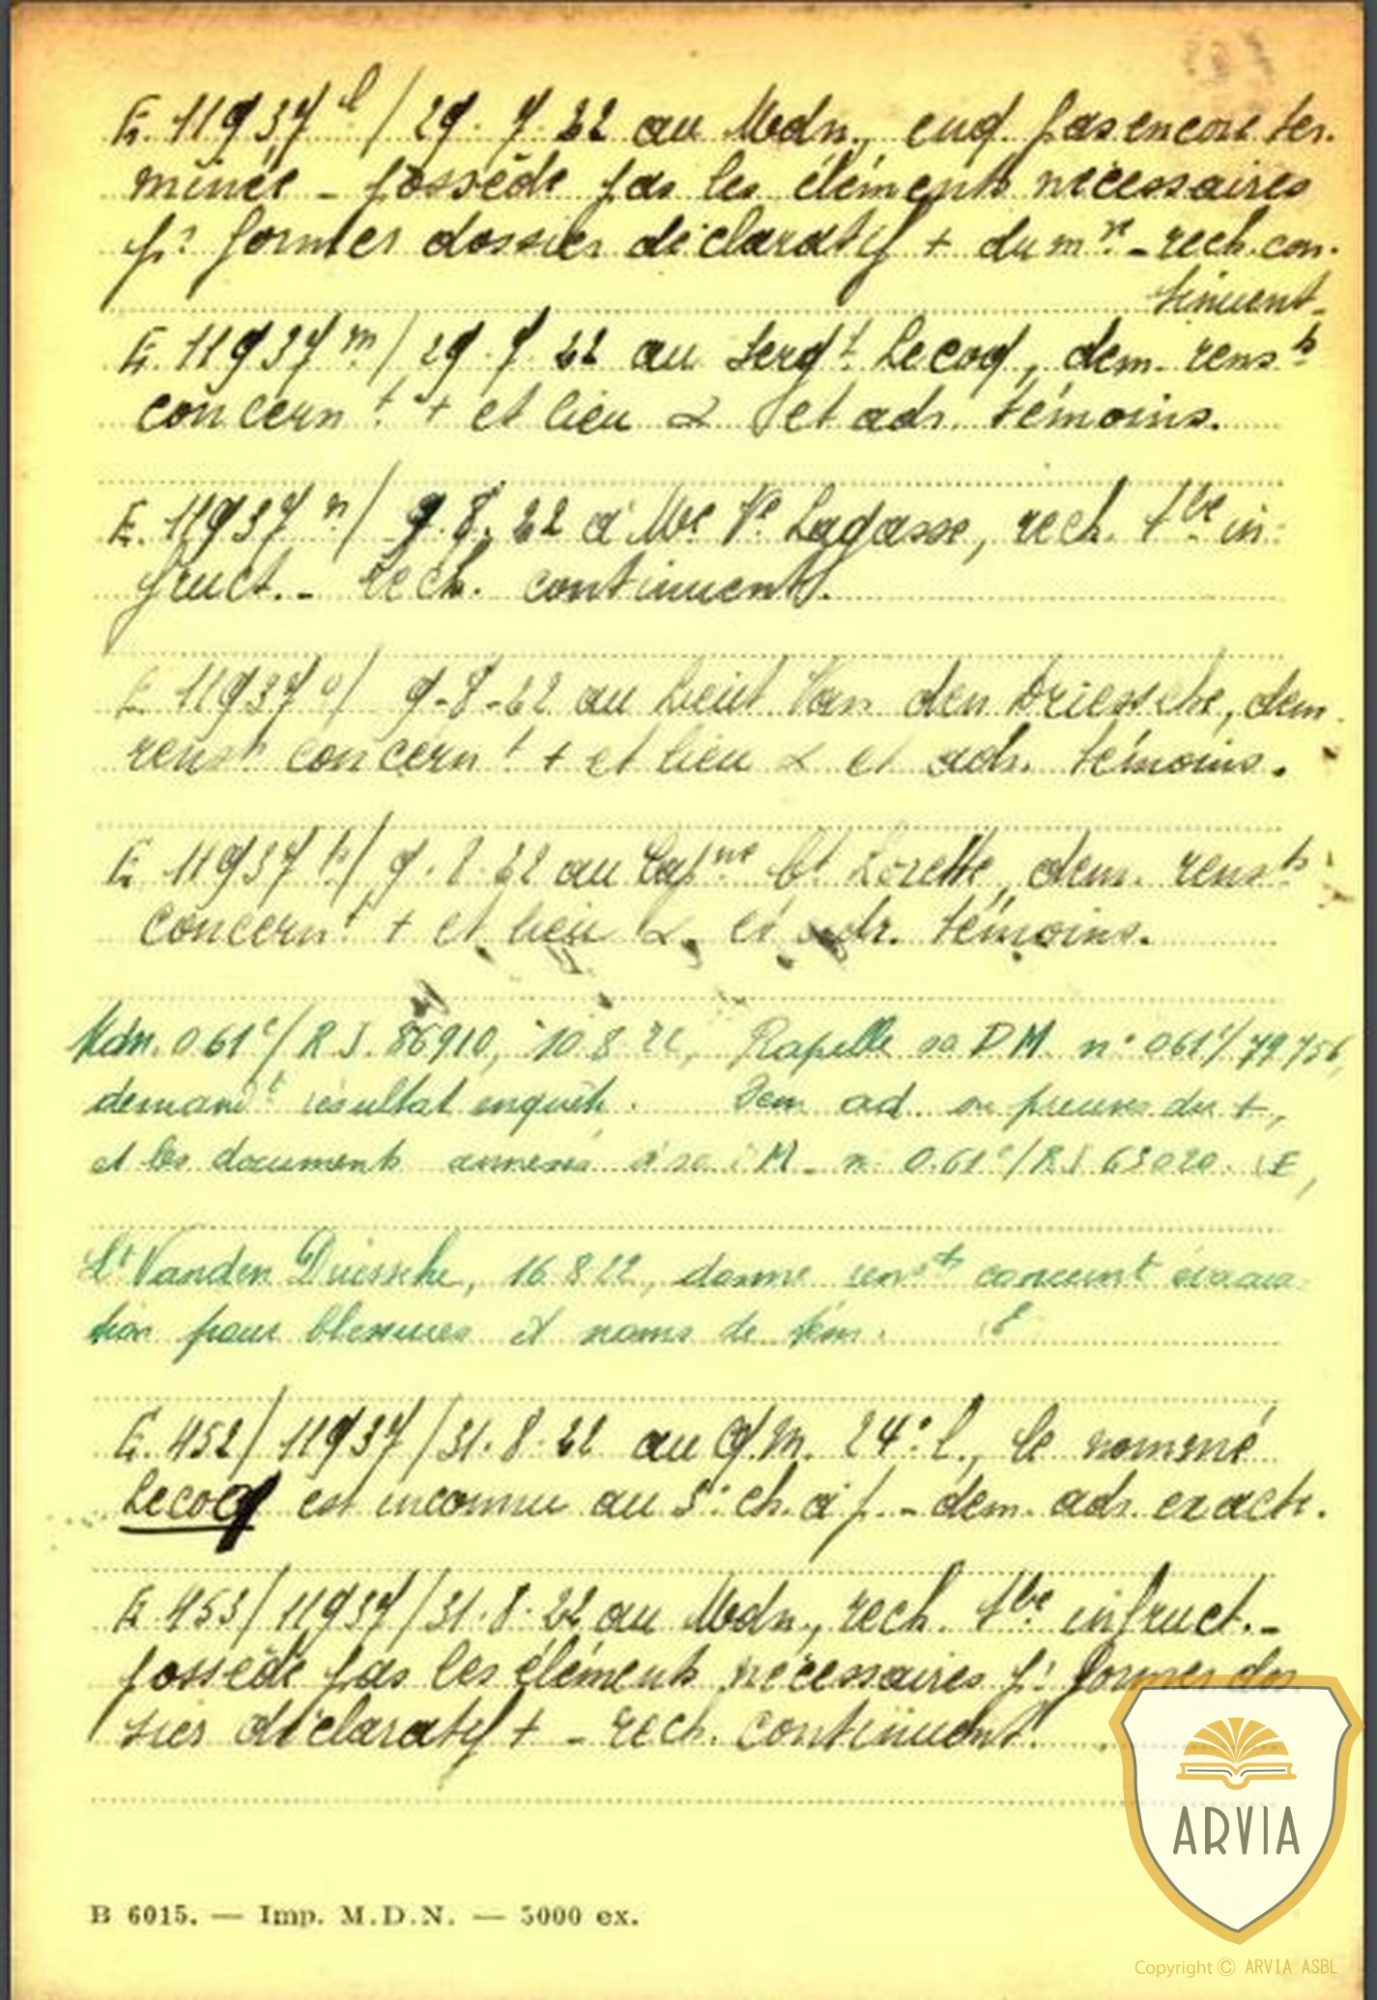 E. 11937 l / 29.7.22 au Mdn., enq. pas encore ter-
minée - possède pas les éléments nécessaires
pr former dossier déclaratif + du mre - rech. con-
tinuent -
E. 11937 m / 29.7.22 au Sergt Lecoq, dem. rensts
concernt + et lieu & et adr. témoins.
E. 11937 n / 9.8.22 à Me Ve Lagasse, rech. tbe in-
fruct. - Rech. continuent.
E 11937 o / 9-8-22 au Lieut Van den Driessche, dem.
rensts concernt + et lieu & et adr. témoins.
E 11937 p / 9.8.22 au Capne Ct Lorette, dem. rensts
concernt + et lieu &, et adr. témoins.
Mdn. 061c/R.J. 86910, 10 8 22, Rapelle sa DM. n° 061c/79756,
demandt résultat enquête. Dem ad. ou preuves du +,
et les documents annexés à sa M. n° 0.61c/RJ 63020. E,
Lt Vanden Driessche, 16.8.22, donne rensts concernt évacua-
tion pour blessures et noms de tém. E
E. 452/11937/31.8.22 au Q.M. 24e l., le nommé
Lecoq est inconnu au 5e ch. à p. - dem. adr. exacte.
E. 453/11937/31.8.22 au Mdn., rech. tbe infruct. -
possède pas les éléments nécessaires pr former dos-
sier déclaratif + - rech. continuent.
B 6015. — Imp. M.D.N. — 5000 ex.
ARVIA
Copyright © ARVIA ASBL